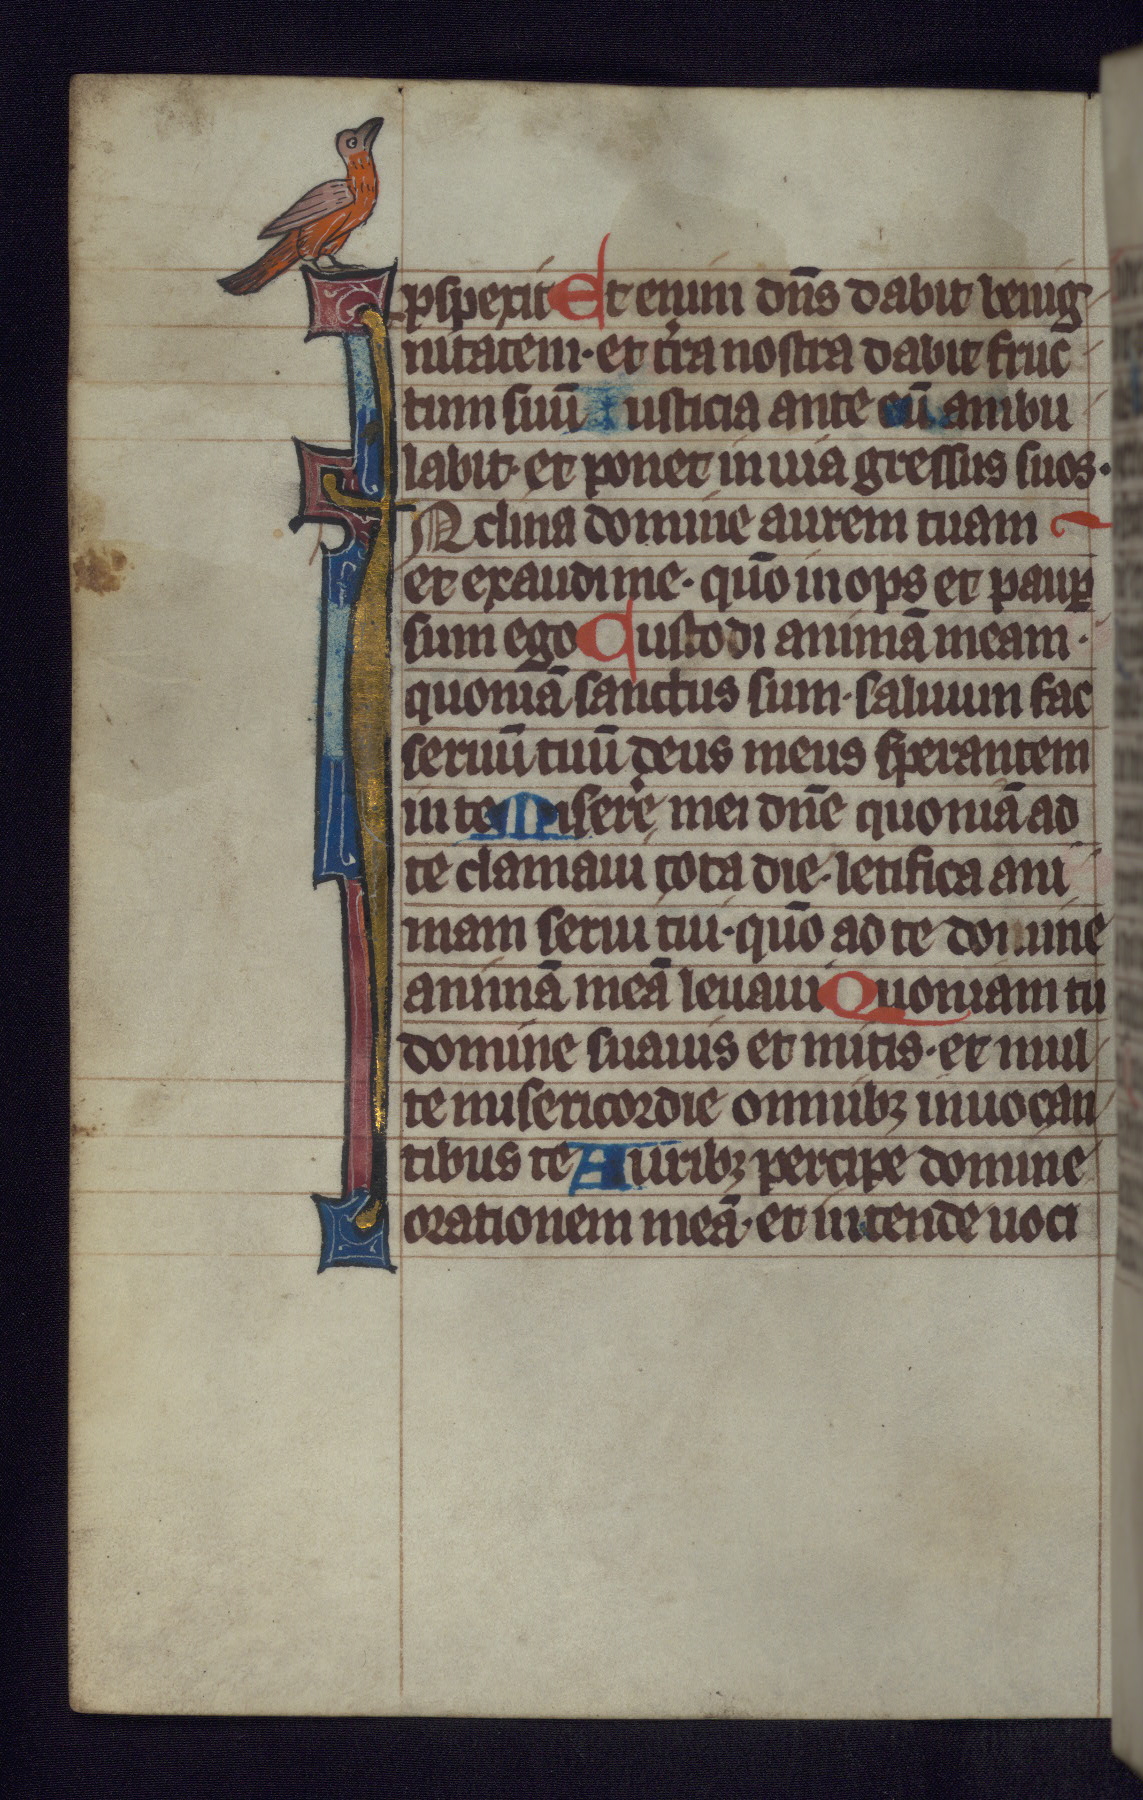 ꝓspexit Et enim dn̄s dabit benig
nitatem · et tr̄a nostra dabit fruc
tum suū Iusticia ante eū ambu
labit · et ponet in uia gressus suos ·
Inclina domine aurem tuam
et exaudi me · quō inops et paup̲
sum ego Custodi animā meam ·
quoniā sanctus sum · saluum fac
seruū tuū deus meus sperantem
in te Miserē mei dn̄e quoniā ad
te clamaui tota die · letifica ani
mam serui tui · quō ad te domine
animā meā leuaui Quoniam tu
domine suauis et mitis · et mul
te misericordie omnibꝫ inuocan
tibus te Auribꝫ percipe domine
orationem meā · et intende uoci